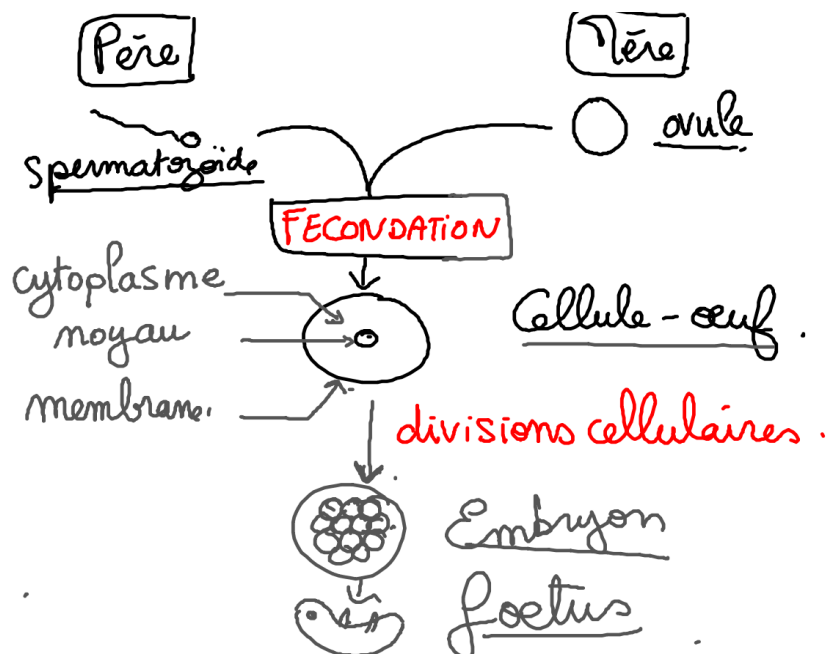 Père
Mère
spermatozoïde
ovule
FECONDATION
cytoplasme
noyau
membrane.
Cellule-oeuf.
divisions cellulaires.
Embryon
foetus